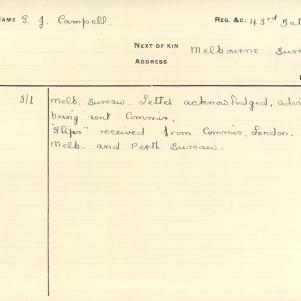 NAME S. J. Campell. REG. &C. 43rd Bat
NEXT OF KIN Melbourne Bure
ADDRESS
3/1 Melb. Bureau. Letter acknowledged, advi
being sent Commis.
"Slips" received from Commis, London.
Melb. and Perth Bureau.